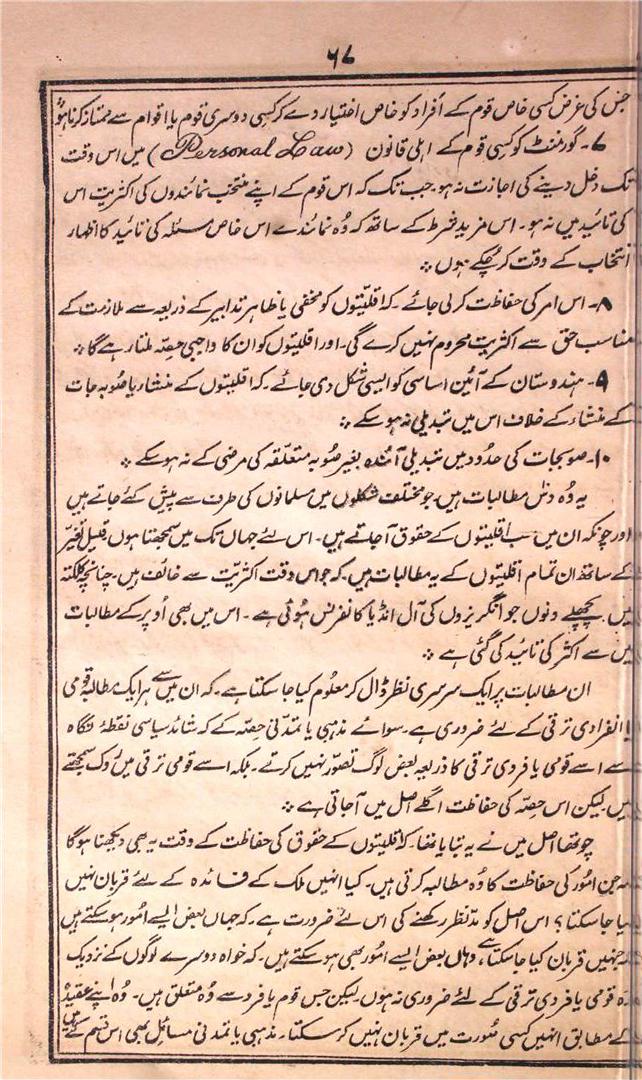 ۶۷
جس کی غرض کسی خاص قوم کے افراد کو خاص اختیار دے کر کسی دوسری قوم یا اقوام سے ممتاز کرنا ہو
۷۔ گورمنٹ کو کسی قوم کے اہلی قانون (Personal Law) میں اس وقت
تک دخل دینے کی اجازت نہ ہو۔ جب تک کہ اس قوم کے اپنے منتخب نمائندوں کی اکثریت اس
کی تائید میں نہ ہو۔ اس مزید شرط کے ساتھ کہ وُہ نمائندے اس خاص مسئلہ کی تائید کا اظہار
انتخاب کے وقت کر چُکے ہوں ؞
۸۔ اس امر کی حفاظت کر لی جائے۔ کہ اقلیتوں کو مخفی یا ظاہر تدابیر کے ذریعہ سے ملازمت کے
مناسب حق سے اکثریت محروم نہیں کرے گی۔ اور اقلیتوں کو ان کا واجبی حِصّہ ملتا رہے گا ؞
۹۔ ہندوستان کے آئین اساسی کو ایسی شکل دی جائے۔ کہ اقلیتوں کے منشاء یا صُوبہ جات
کے منشاء کے خلاف اس میں تبدیلی نہ ہو سکے ؞
۱۰۔ صوبجات کی حدود میں تبدیلی آئندہ بغیر صُوبہ متعلّقہ کی مرضی کے نہ ہو سکے ؞
یہ وُہ دس مطالبات ہیں۔ جو مختلف شکلوں میں مسلمانوں کی طرف سے پیش کئے جاتے ہیں
اور چونکہ ان میں سب اقلیتوں کے حقوق آ جاتے ہیں۔ اس لئے جہاں تک میں سمجھتا ہوں قلیل تغیّر
کے ساتھ ان تمام اقلیتوں کے یہ مطالبات ہیں۔ کہ جو اس وقت اکثریّت سے خائف ہیں۔ چنانچہ کلکتہ
میں پچھلے دنوں جو انگریزوں کی آل انڈیا کانفرنس ہُوئی ہے۔ اس میں بھی اُوپر کے مطالبات
میں سے اکثر کی تائید کی گئی ہے ؞
ان مطالبات پر ایک سرسری نظر ڈال کر معلُوم کیا جا سکتا ہے۔ کہ ان میں سے ہر ایک مطالبہ قومی
یا انفرادی ترقی کے لئے ضروری ہے۔ سوائے مذہبی یا تمدّنی حِصّہ کے کہ شائد سیاسی نقطۂ نگاہ
سے اسے قومی یا فردی ترقی کا ذریعہ بعض لوگ تصوّر نہیں کرتے۔ بلکہ اسے قومی ترقی میں روک سمجھتے
ہیں۔ لیکن اس حِصّہ کی حفاظت اگلے اصل میں آ جاتی ہے ؞
چوتھا اصل میں نے یہ بتایا تھا۔ کہ اقلیتوں کے حقوق کی حفاظت کے وقت یہ بھی دیکھنا ہو گا
کہ جن امُور کی حفاظت کا وُہ مطالبہ کرتی ہیں۔ کیا انہیں ملک کے فائدہ کے لئے قربان نہیں
کیا جا سکتا؟ اس اصل کو مدّنظر رکھنے کی اس لئے ضرورت ہے۔ کہ جہاں بعض ایسے امُور ہو سکتے ہیں
کہ جنہیں قربان کیا جا سکتا ہے، وہاں بعض ایسے امُور بھی ہو سکتے ہیں۔ کہ خواہ دوسرے لوگوں کے نزدیک
وُہ قومی یا فردی ترقی کے لئے ضروری نہ ہوں۔ لیکن جس قوم یا فرد سے وُہ متعلق ہیں۔ وُہ اپنے عقیدہ
کے مطابق انہیں کسی صُورت میں قربان نہیں کر سکتا۔ مذہبی یا تمدنی مسائل بھی اس قسم کے ہیں